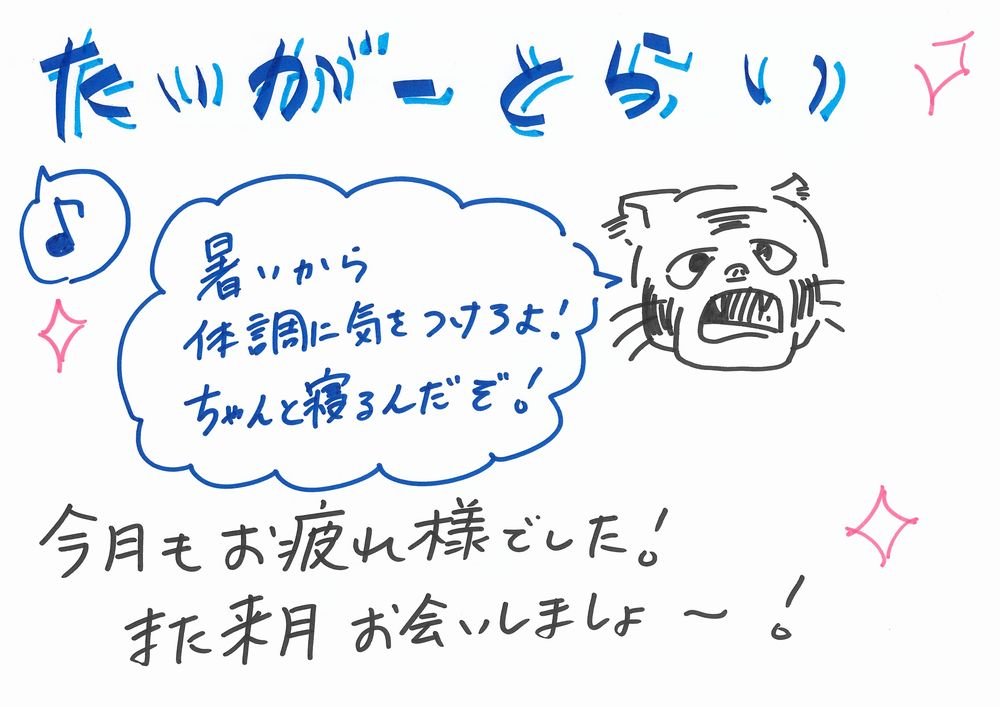 たいがーとらい
暑いから
体調に気をつけろよ!
ちゃんと寝るんだぞ!
今月もお疲れ様でした!
また来月お会いしましょ〜!